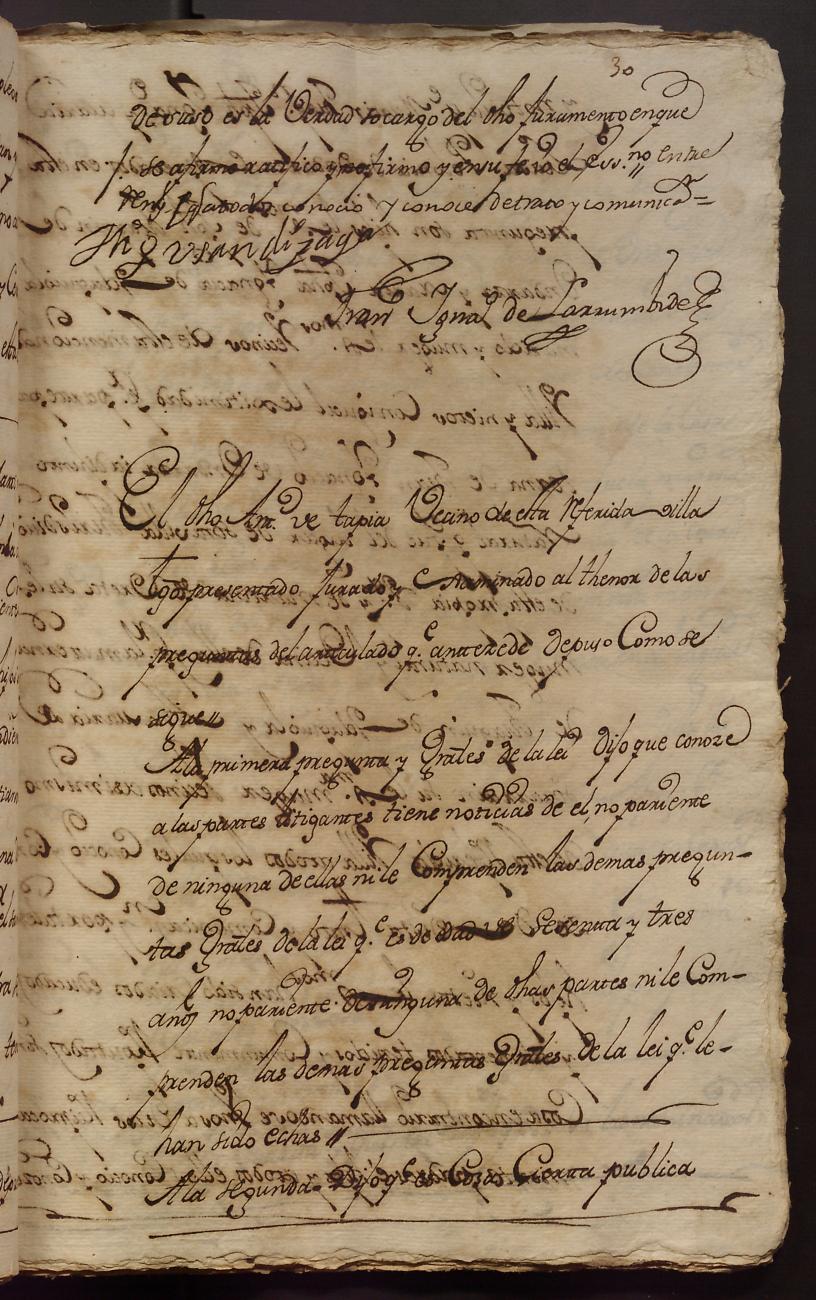 30
depuso es la Verdad so cargo del dho Juramento en que
se afirmo ratifico y firmo y en su fe Yo el ess.no entre
conocio y conoce de trato y comunicaon =
Fran.co Ignal de Larrumbide
El dho Ant.o de tapia Vecino de esta referida villa
tgo presentado Jurado y Examinado al thenor de las
preguntas del articulado q.e antezede depuso Como se
sigue
A la primera pregunta y Grales de la lei Dijo que conoze
a las partes litigantes tiene noticias de el, no pariente
de ninguna de ellas ni le Comprenden las demas pregun-
tas Grales de la lei q.e es de edad de Sesenta y tres
años no pariente de ninguna de dhas partes ni le Com-
prenden las demas preguntas Grales de la lei q.e le-
han sido echas
A la segunda Dijo q.e es Cosa Cierta publica